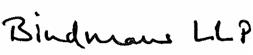 Bindmans LLP